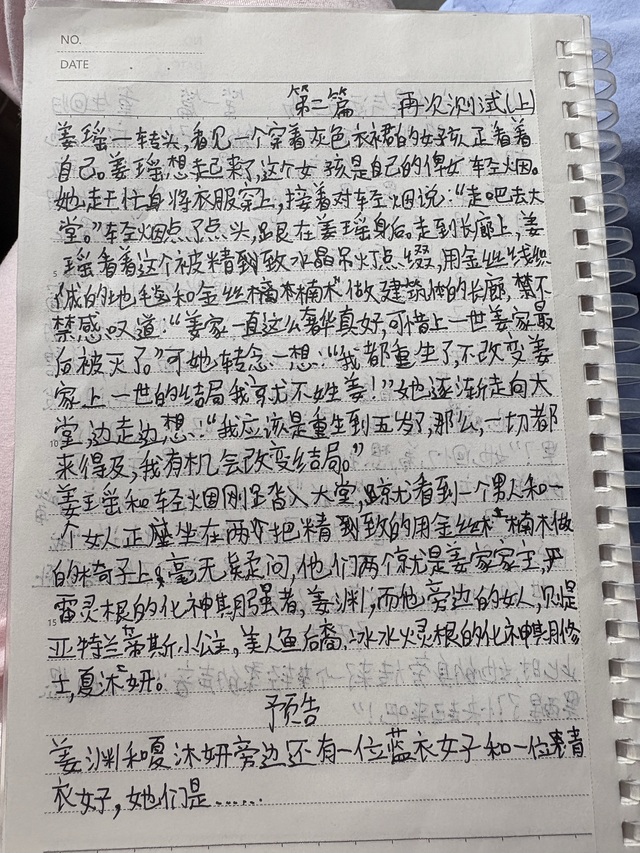 NO.
DATE
第二篇 再次测试(上)
姜瑶一转头,看见一个穿着灰色衣裙的女孩正看着
自己。姜瑶想起来了,这个女孩是自己的婢女轻烟。
她走上前将衣服穿上,接着对轻烟说:“走吧去大
堂。”轻烟点了点头,跟在姜瑶身后。走到长廊上,姜
瑶看着这个被精致水晶吊灯点缀,用金丝线织
成的地毯和金丝楠木做建筑体的长廊,禁不
禁感叹道:“姜家一直这么奢华真好,可惜上一世姜家最
后被灭了。”可她转念一想:“我都重生了,不改变姜
家上一世的结局我就不姓姜!”她逐渐走向大
堂,边走边想:“我应该是重生到五岁了,那么,一切都
来得及,我有机会改变结局。”
姜瑶和轻烟刚踏入大堂,就看到一个男人和一
个女人正座坐在两把精致的用金丝楠木做
的椅子上,毫无疑问,他们两个就是姜家家主,
雷灵根的化神期强者,姜渊,而他旁边的女人,则是
亚特兰蒂斯小公主,美人鱼后裔,冰水火灵根的化神期修
士,夏沐妍。
预告
姜渊和夏沐妍旁边还有一位蓝衣女子和一位青
衣女子,她们是……